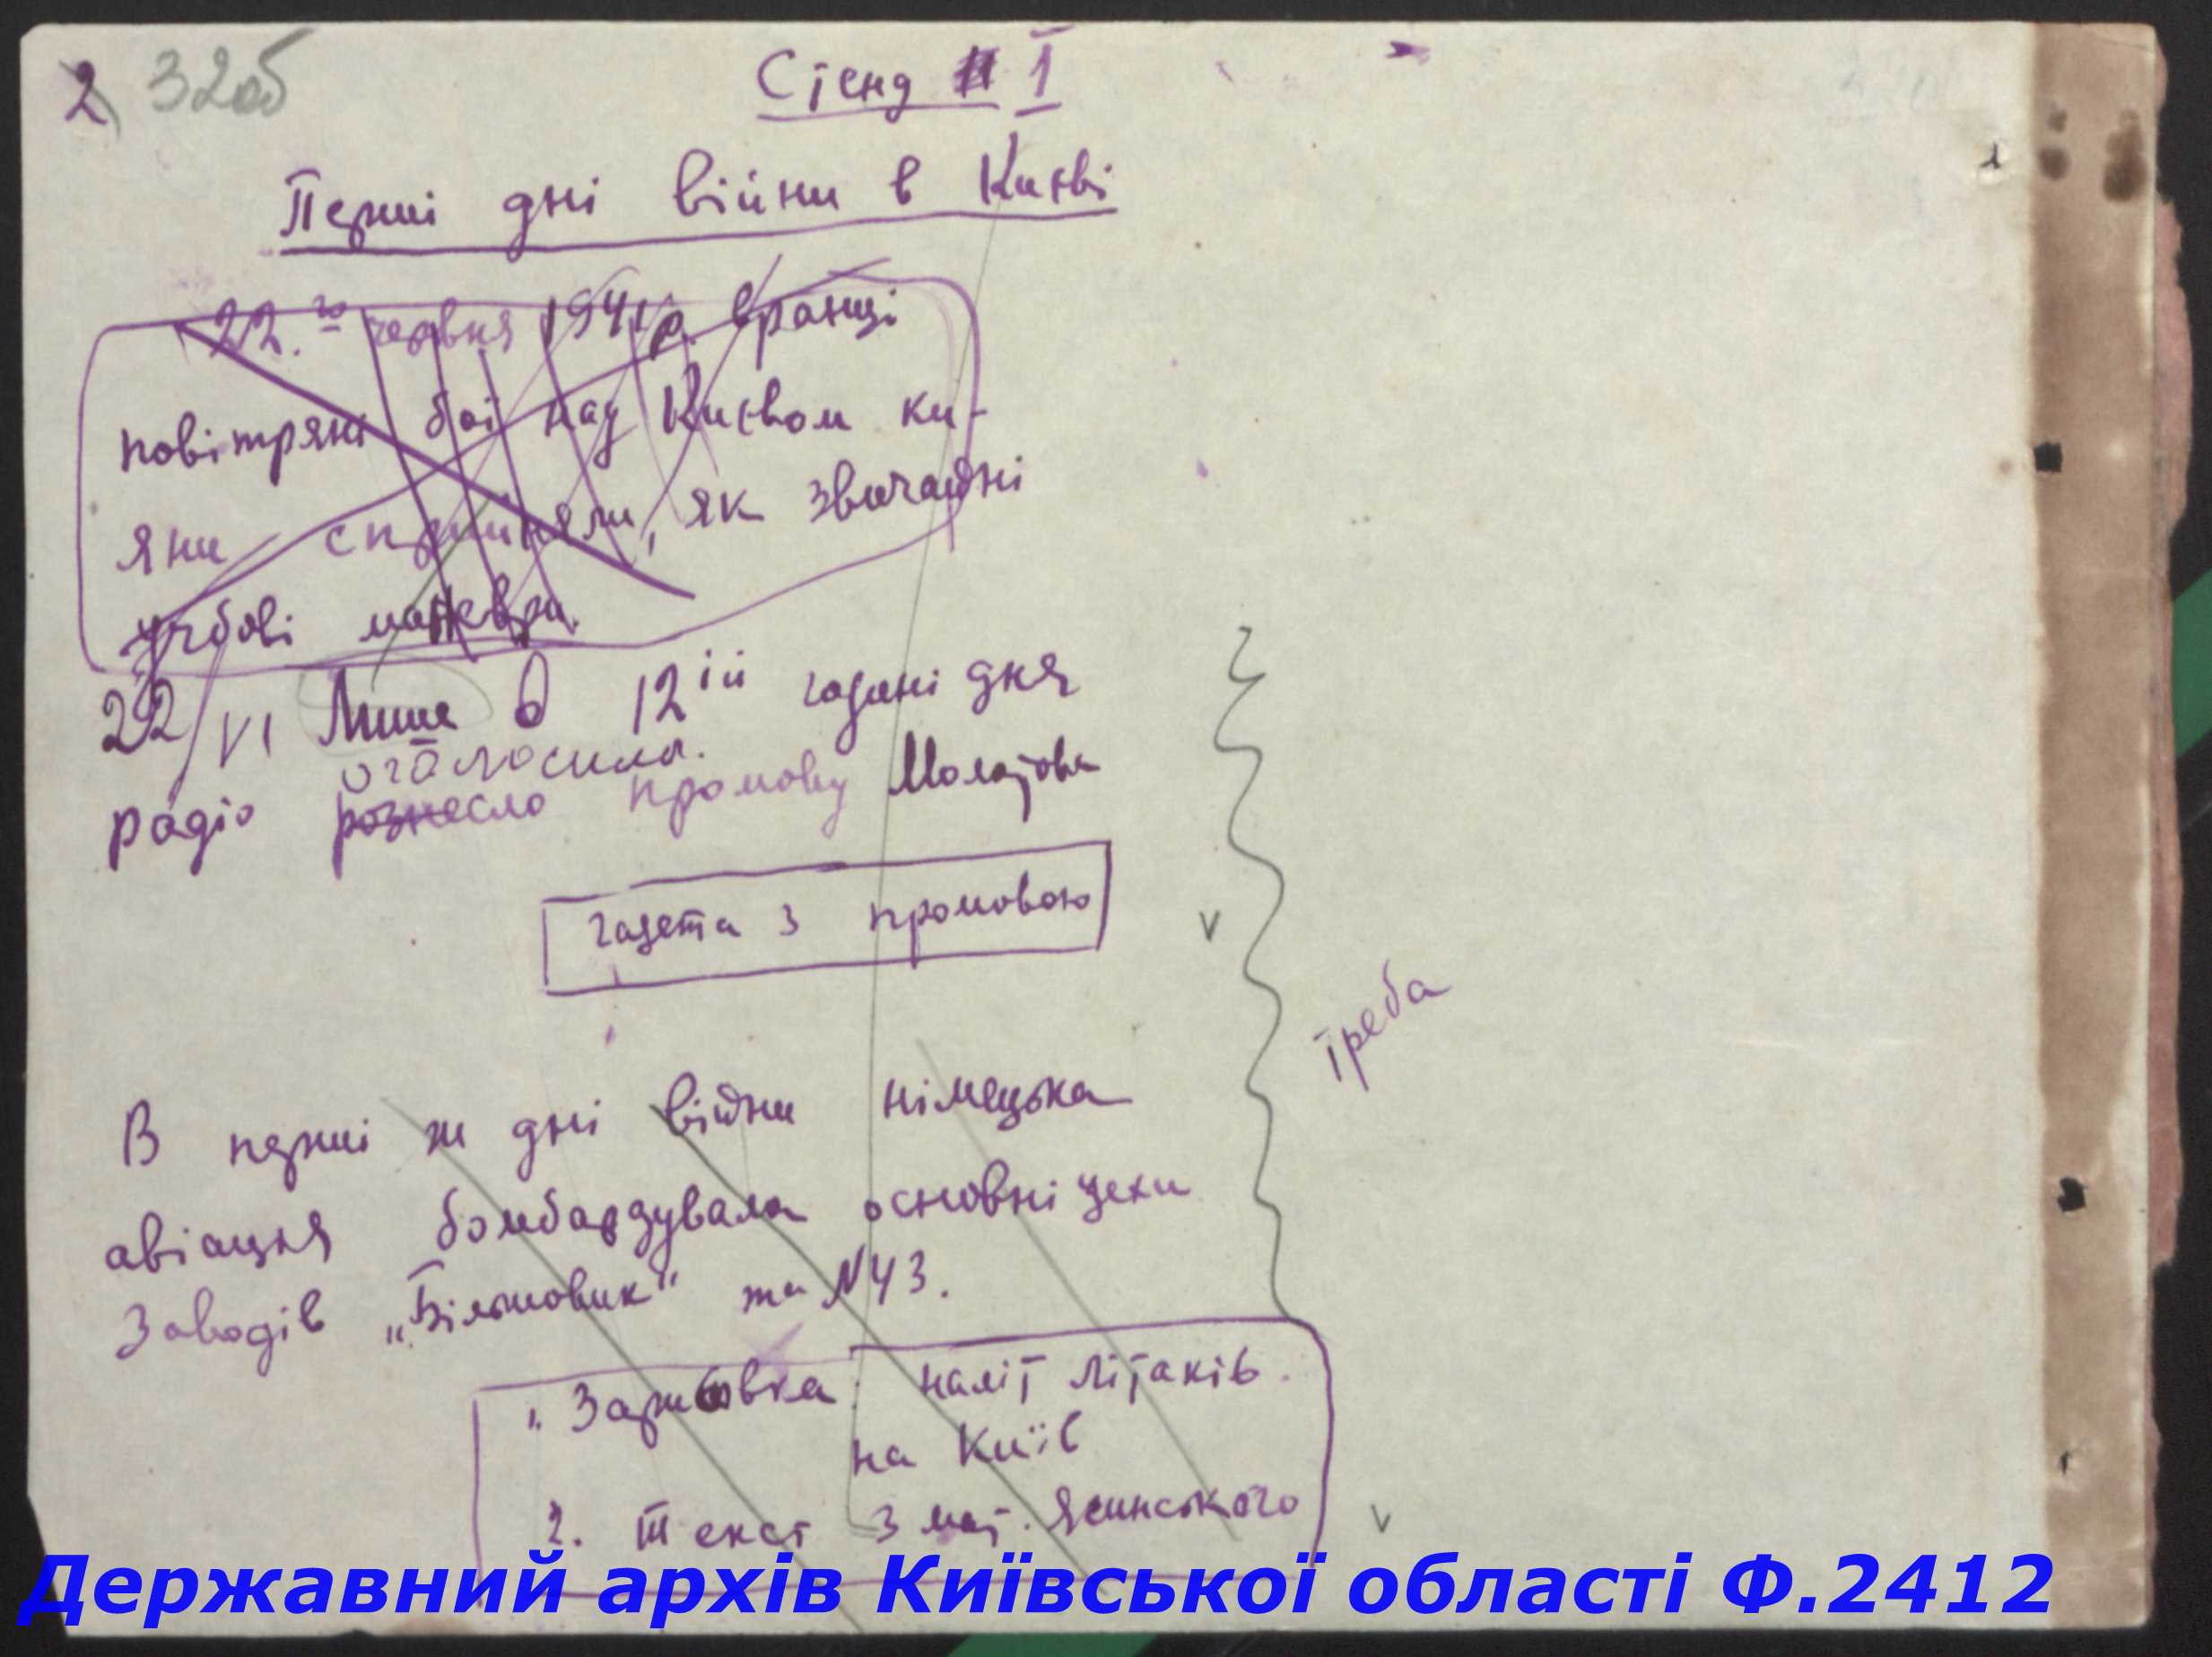 2 32об
Стенд I
Перші дні війни в Києві
22.го червня 1941 р. вранці
повітряні бої над Києвом ки-
яни сприйняли, як звичайні
учбові маневри.
22/VI Лише о 12ій годині дня
оголосила.
радіо рознесло промову Молотова
газета з промовою
V
треба
В перші ж дні війни німецька
авіація бомбардувала основні цехи
Заводів „Більшовик" та N43.
наліт літаків.
на Київ
2. Текст з мат. Ясинського
V
Державний архів Київської області Ф.2412